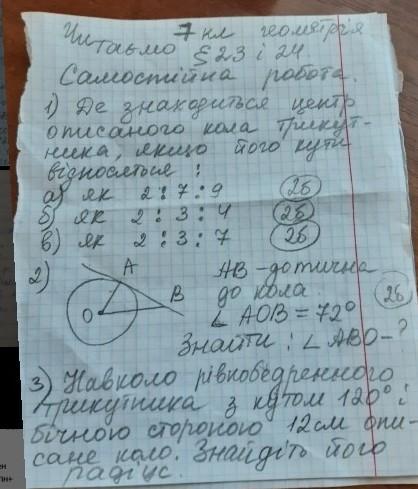 Читаємо 7 кл геометрія
§ 23 і 24.
Самостійна робота.
1) Де знаходиться центр
описаного кола трикут-
ника, якщо його кути
відносяться:
а) як 2:7:9 2б
б) як 2:3:4 2б
в) як 2:3:7 2б
2) A B O
AB - дотична
до кола. 2б
∠ AOB = 72°
Знайти: ∠ ABO - ?
3) Навколо рівнобедренного
трикутника з кутом 120° і
бічною стороною 12 см опи-
сане коло. Знайдіть його
радіус.